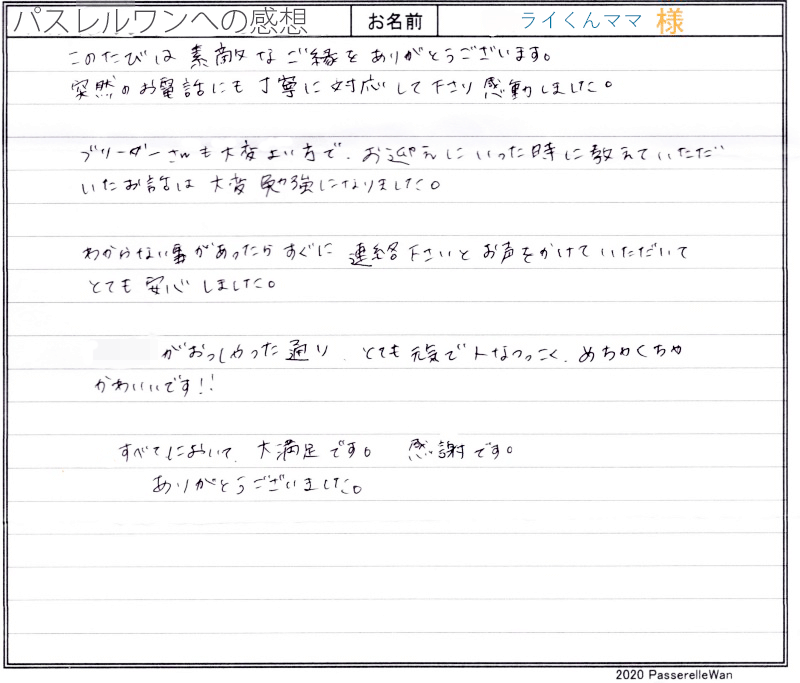 パスレルワンへの感想 お名前 ライくんママ 様
このたびは 素敵な ご縁を ありがとうございます。
突然の お電話にも 丁寧に 対応して下さり 感動しました。
ブリーダーさんも大変よい方で、お迎えにいった時に教えていただ
いたお話は 大変 勉強になりました。
わからない事があったら すぐに 連絡下さいと お声をかけて いただいて
とても 安心しました。
がおっしゃった通り、とても 元気で 人なつっこく、めちゃくちゃ
かわいいです!!
すべてにおいて、大満足です。 感謝です。
ありがとうございました。
2020 PasserelleWan